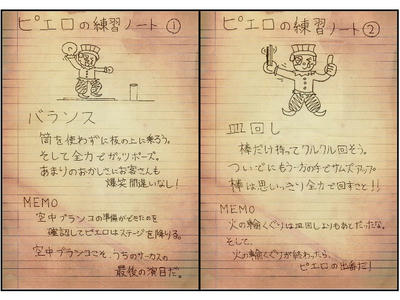 ピエロの練習ノート①
バランス
筒を使わずに板の上に乗ろう。
そして全力でガッツポーズ。
あまりのおかしさにお客さんも
爆笑間違いなし!
MEMO
空中ブランコの準備ができたのを
確認してピエロはステージを降りる。
空中ブランコこそ、うちのサーカスの
最後の演目だ。
ピエロの練習ノート②
皿回し
棒だけ持ってクルクル回そう。
ついでにもう一方の手でサムズアップ
棒は思いっきり全力で回すこと!!
MEMO
火の輪くぐりは皿回しよりもあとだったな。
そして、
火の輪くぐりが終わったら、
ピエロの出番だ!